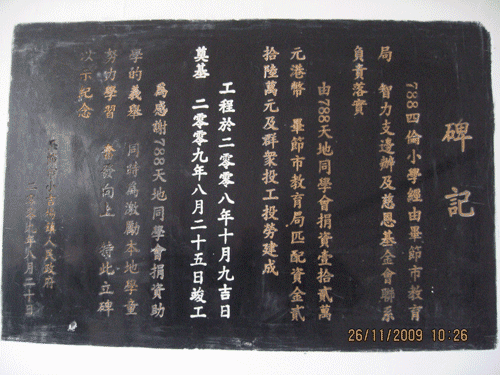 碑記
788四倫小學經由畢節市教育
局 智力支邊辦及慈恩基金會聯系
負責落實
由788天地同學會捐資壹拾貳萬
元港幣 畢節市教育局匹配資金貳
拾陸萬元及群衆投工投勞建成
工程於二零零八年十月九吉日
奠基 二零零九年八月二十五日竣工
為感謝788天地同學會捐資助
學的義舉 同時為激勵本地學童
努力學習 奮發向上 特此立碑
以示紀念
鎮人民政府
二零零九年八月二十日
26/11/2009 10:26